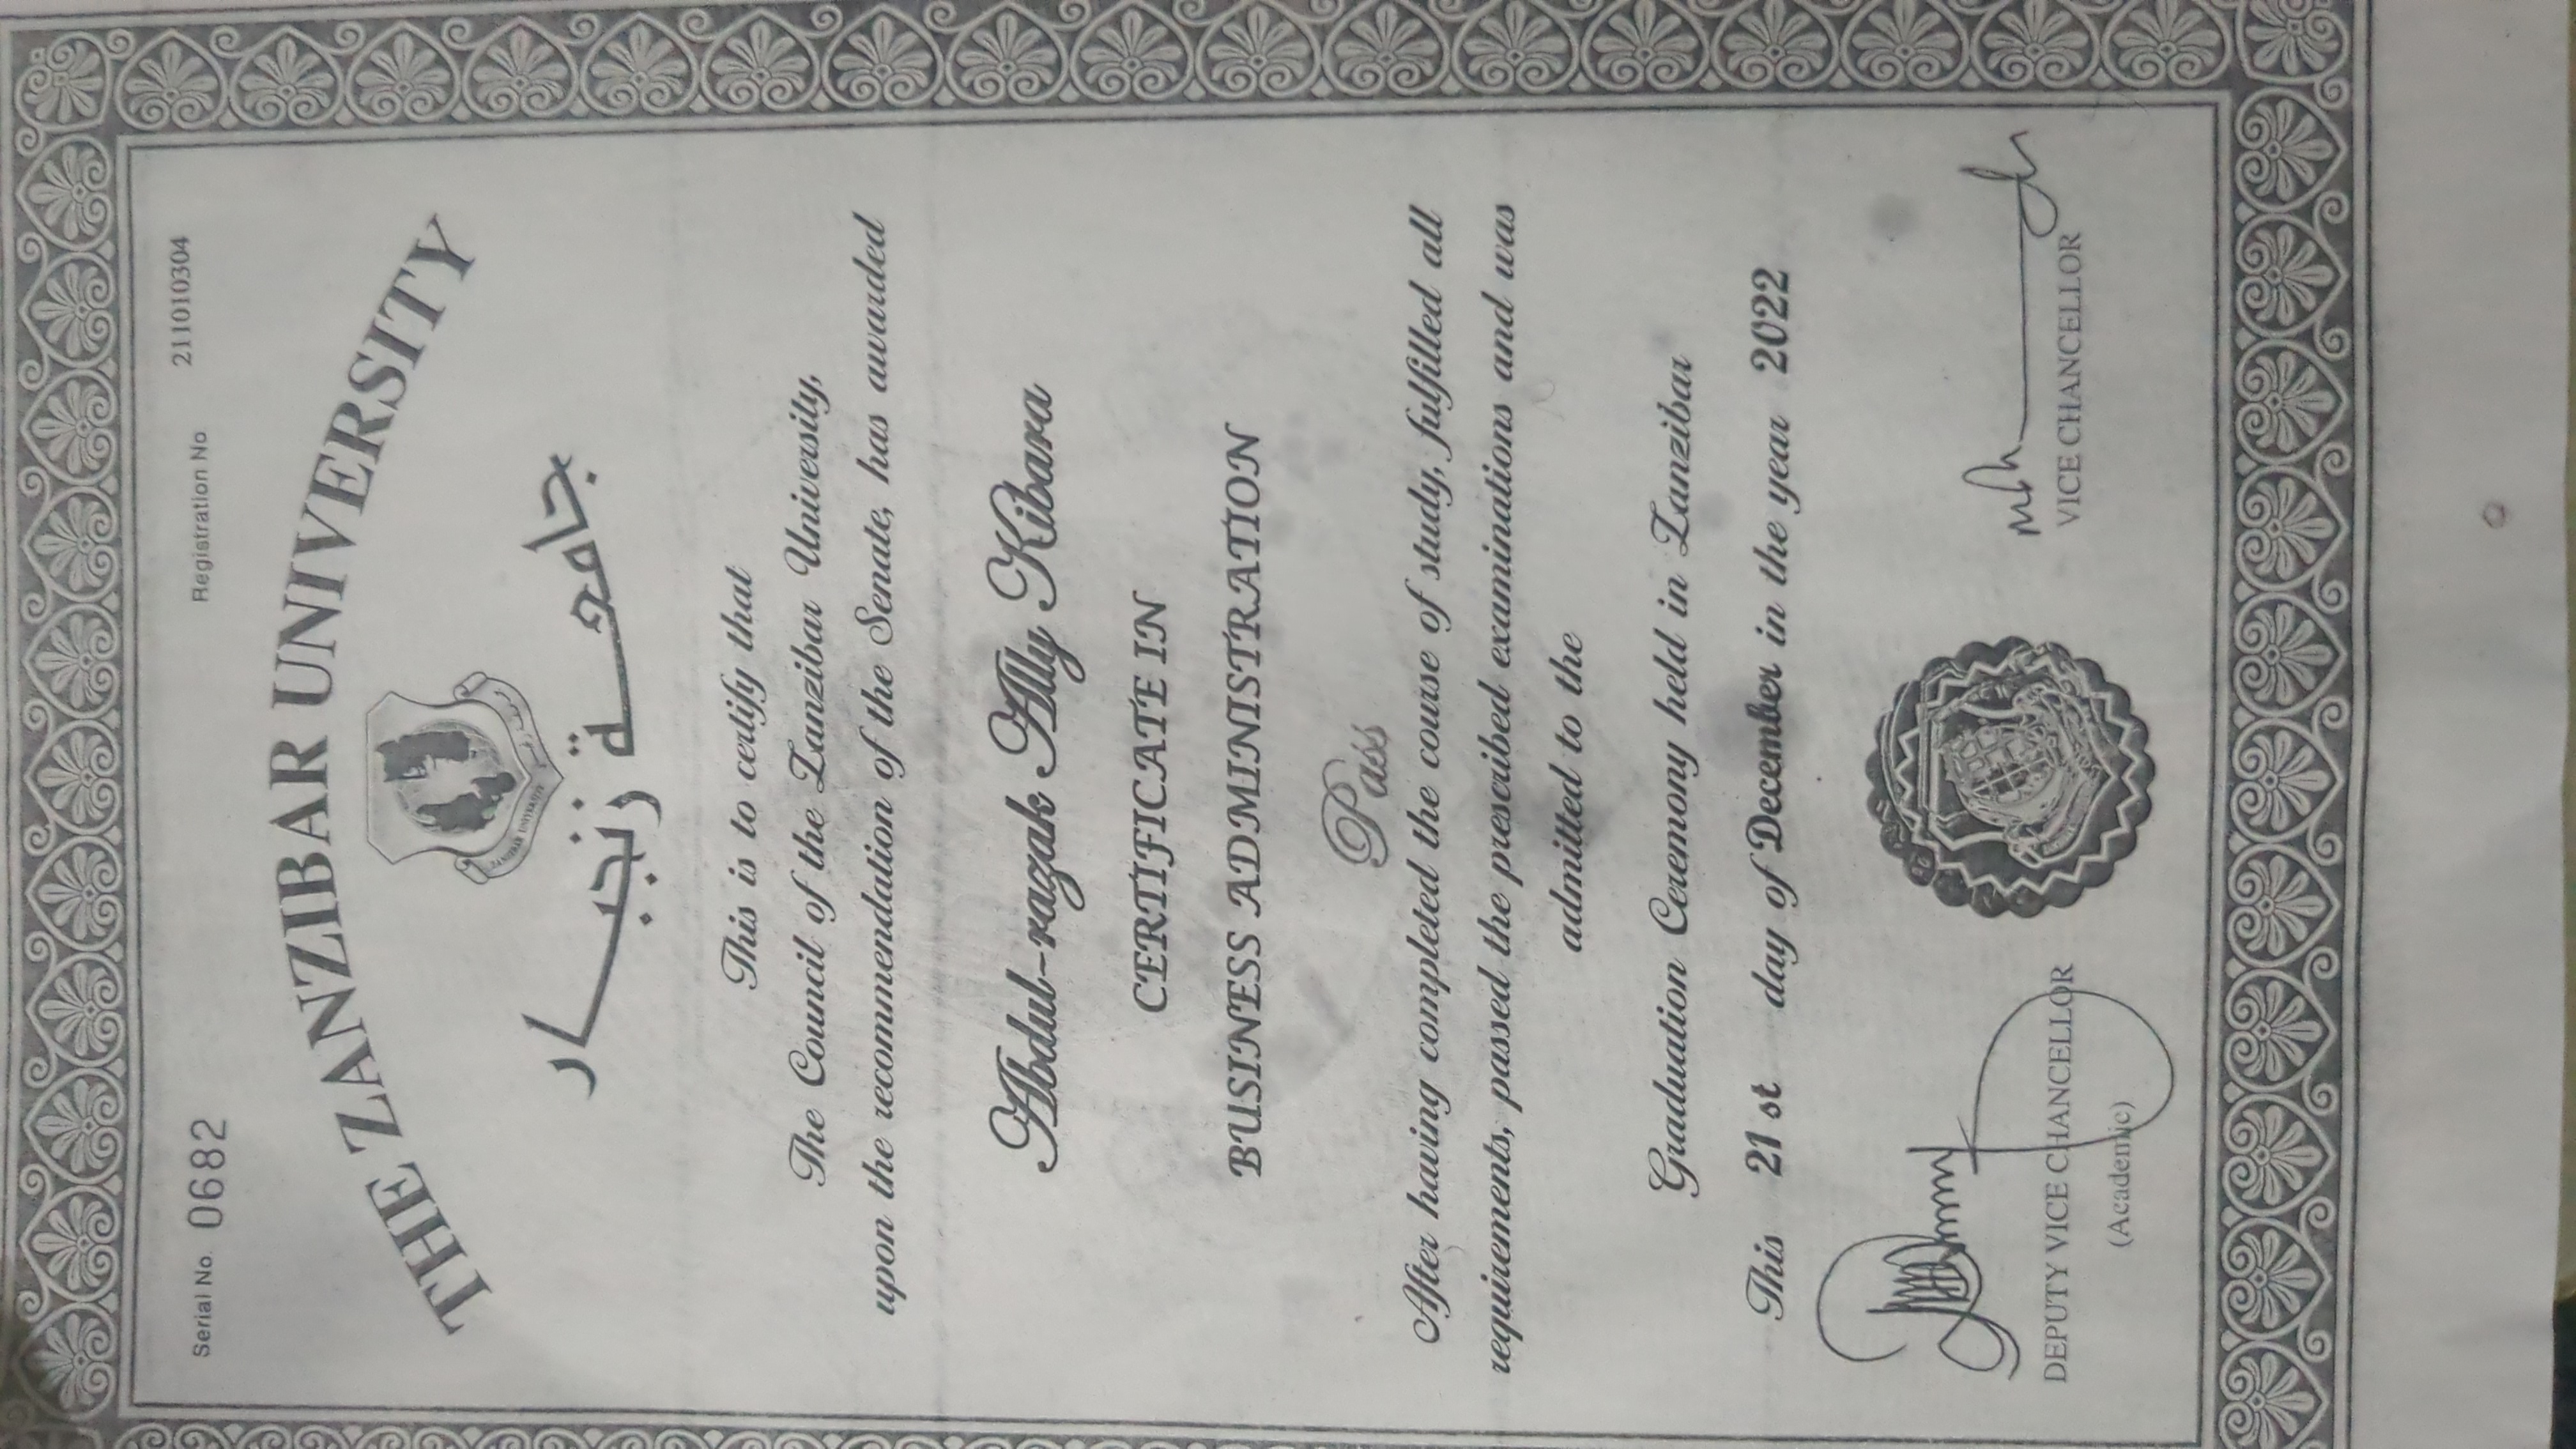 Serial No. 0682
Registration No 2111010304
THE ZANZIBAR UNIVERSITY
ZANZIBAR UNIVERSITY
جامعة زنجبار
This is to certify that
The Council of the Zanzibar University,
upon the recommendation of the Senate, has awarded
Abdul-razak Ally Kibara
CERTIFICATE IN
BUSINESS ADMINISTRATION
Pass
After having completed the course of study, fulfilled all
requirements, passed the prescribed examinations and was
admitted to the
Graduation Ceremony held in Zanzibar
This 21 st day of December in the year 2022
DEPUTY VICE CHANCELLOR
(Academic)
VICE CHANCELLOR